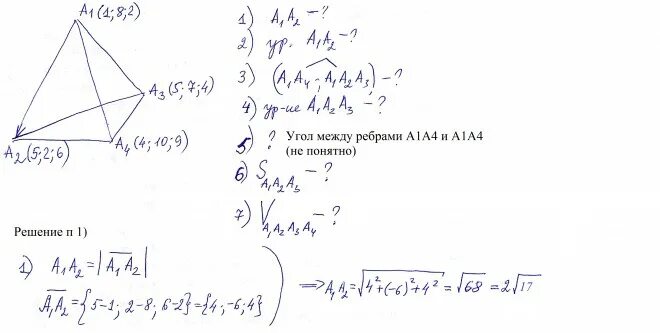 A1(1;8;2)
A3(5;7;4)
A2(5;2;6)
A4(4;10;9)
1) A1A2 – ?
2) ур. A1A2 – ?
3) (A1A4 ; A1A2A3) – ?
4) ур-ие A1A2A3 – ?
5) ? Угол между ребрами А1А4 и А1А4
(не понятно)
6) S A1A2A3 – ?
7) V A1A2A3A4 – ?
Решение п 1)
1) A1A2 = |A1A2|
A1A2 = {5–1; 2–8; 6–2} = {4; –6; 4}
⇒ A1A2 = √4²+(–6)²+4² = √68 = 2√17